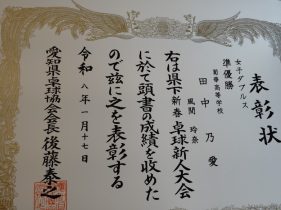 表彰状
女子ダブルス
準優勝
高等学校
田中乃愛
風間玲奈
右は県下新春卓球新人大会
に於て頭書の成績を収めた
ので茲に之を表彰する
令和八年一月十七日
愛知県卓球協会会長 後藤泰之